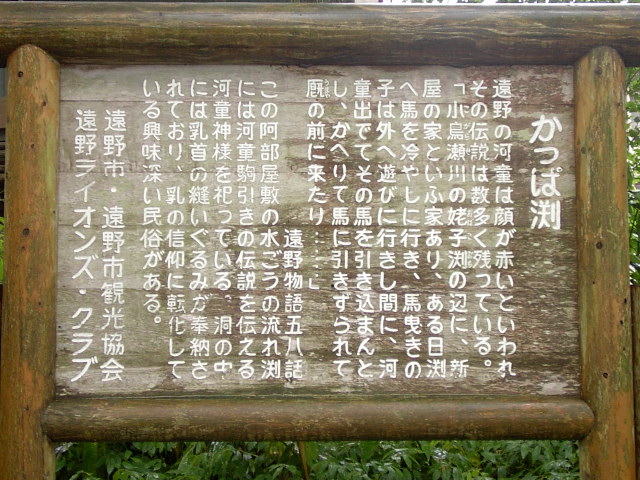 かっぱ渕
遠野の河童は顔が赤いといわれ
その伝説は数多く残っている。
「小烏瀬川の姥子渕の辺に、新
屋の家といふ家あり、ある日渕
へ馬を冷やしに行き、馬曳きの
子は外へ遊びに行きし間に、河
童出でてその馬を引き込まんと
し、かへりて馬に引きずられて
厩の前に来たり……」
遠野物語五八話
この阿部屋敷の水ごうの流れ渕
には河童駒引きの伝説を伝える
河童神様を祀っている、洞の中
には乳首の縫いぐるみが奉納さ
れており、乳の信仰に転化して
いる興味深い民俗がある。
遠野市・遠野市観光協会
遠野ライオンズ・クラブ